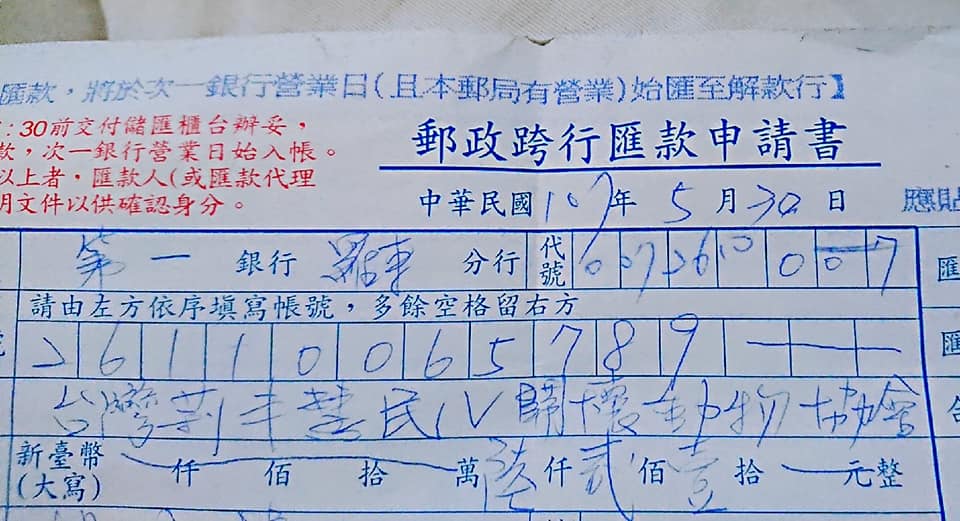 匯款，將於次一銀行營業日(且本郵局有營業)始匯至解款行】
:30前交付儲匯櫃台辦妥，
款，次一銀行營業日始入帳。
以上者，匯款人(或匯款代理
明文件以供確認身分。
郵政跨行匯款申請書
中華民國107年5月30日
應貼
第一 銀行 羅東 分行 代號 007 26 0 0 7
匯
請由左方依序填寫帳號，多餘空格留右方
26110065789
匯
台灣 慧民 關懷動物協會
合
新臺幣(大寫) 仟 佰 拾 萬 陸 仟 貳 佰 壹 拾 元整